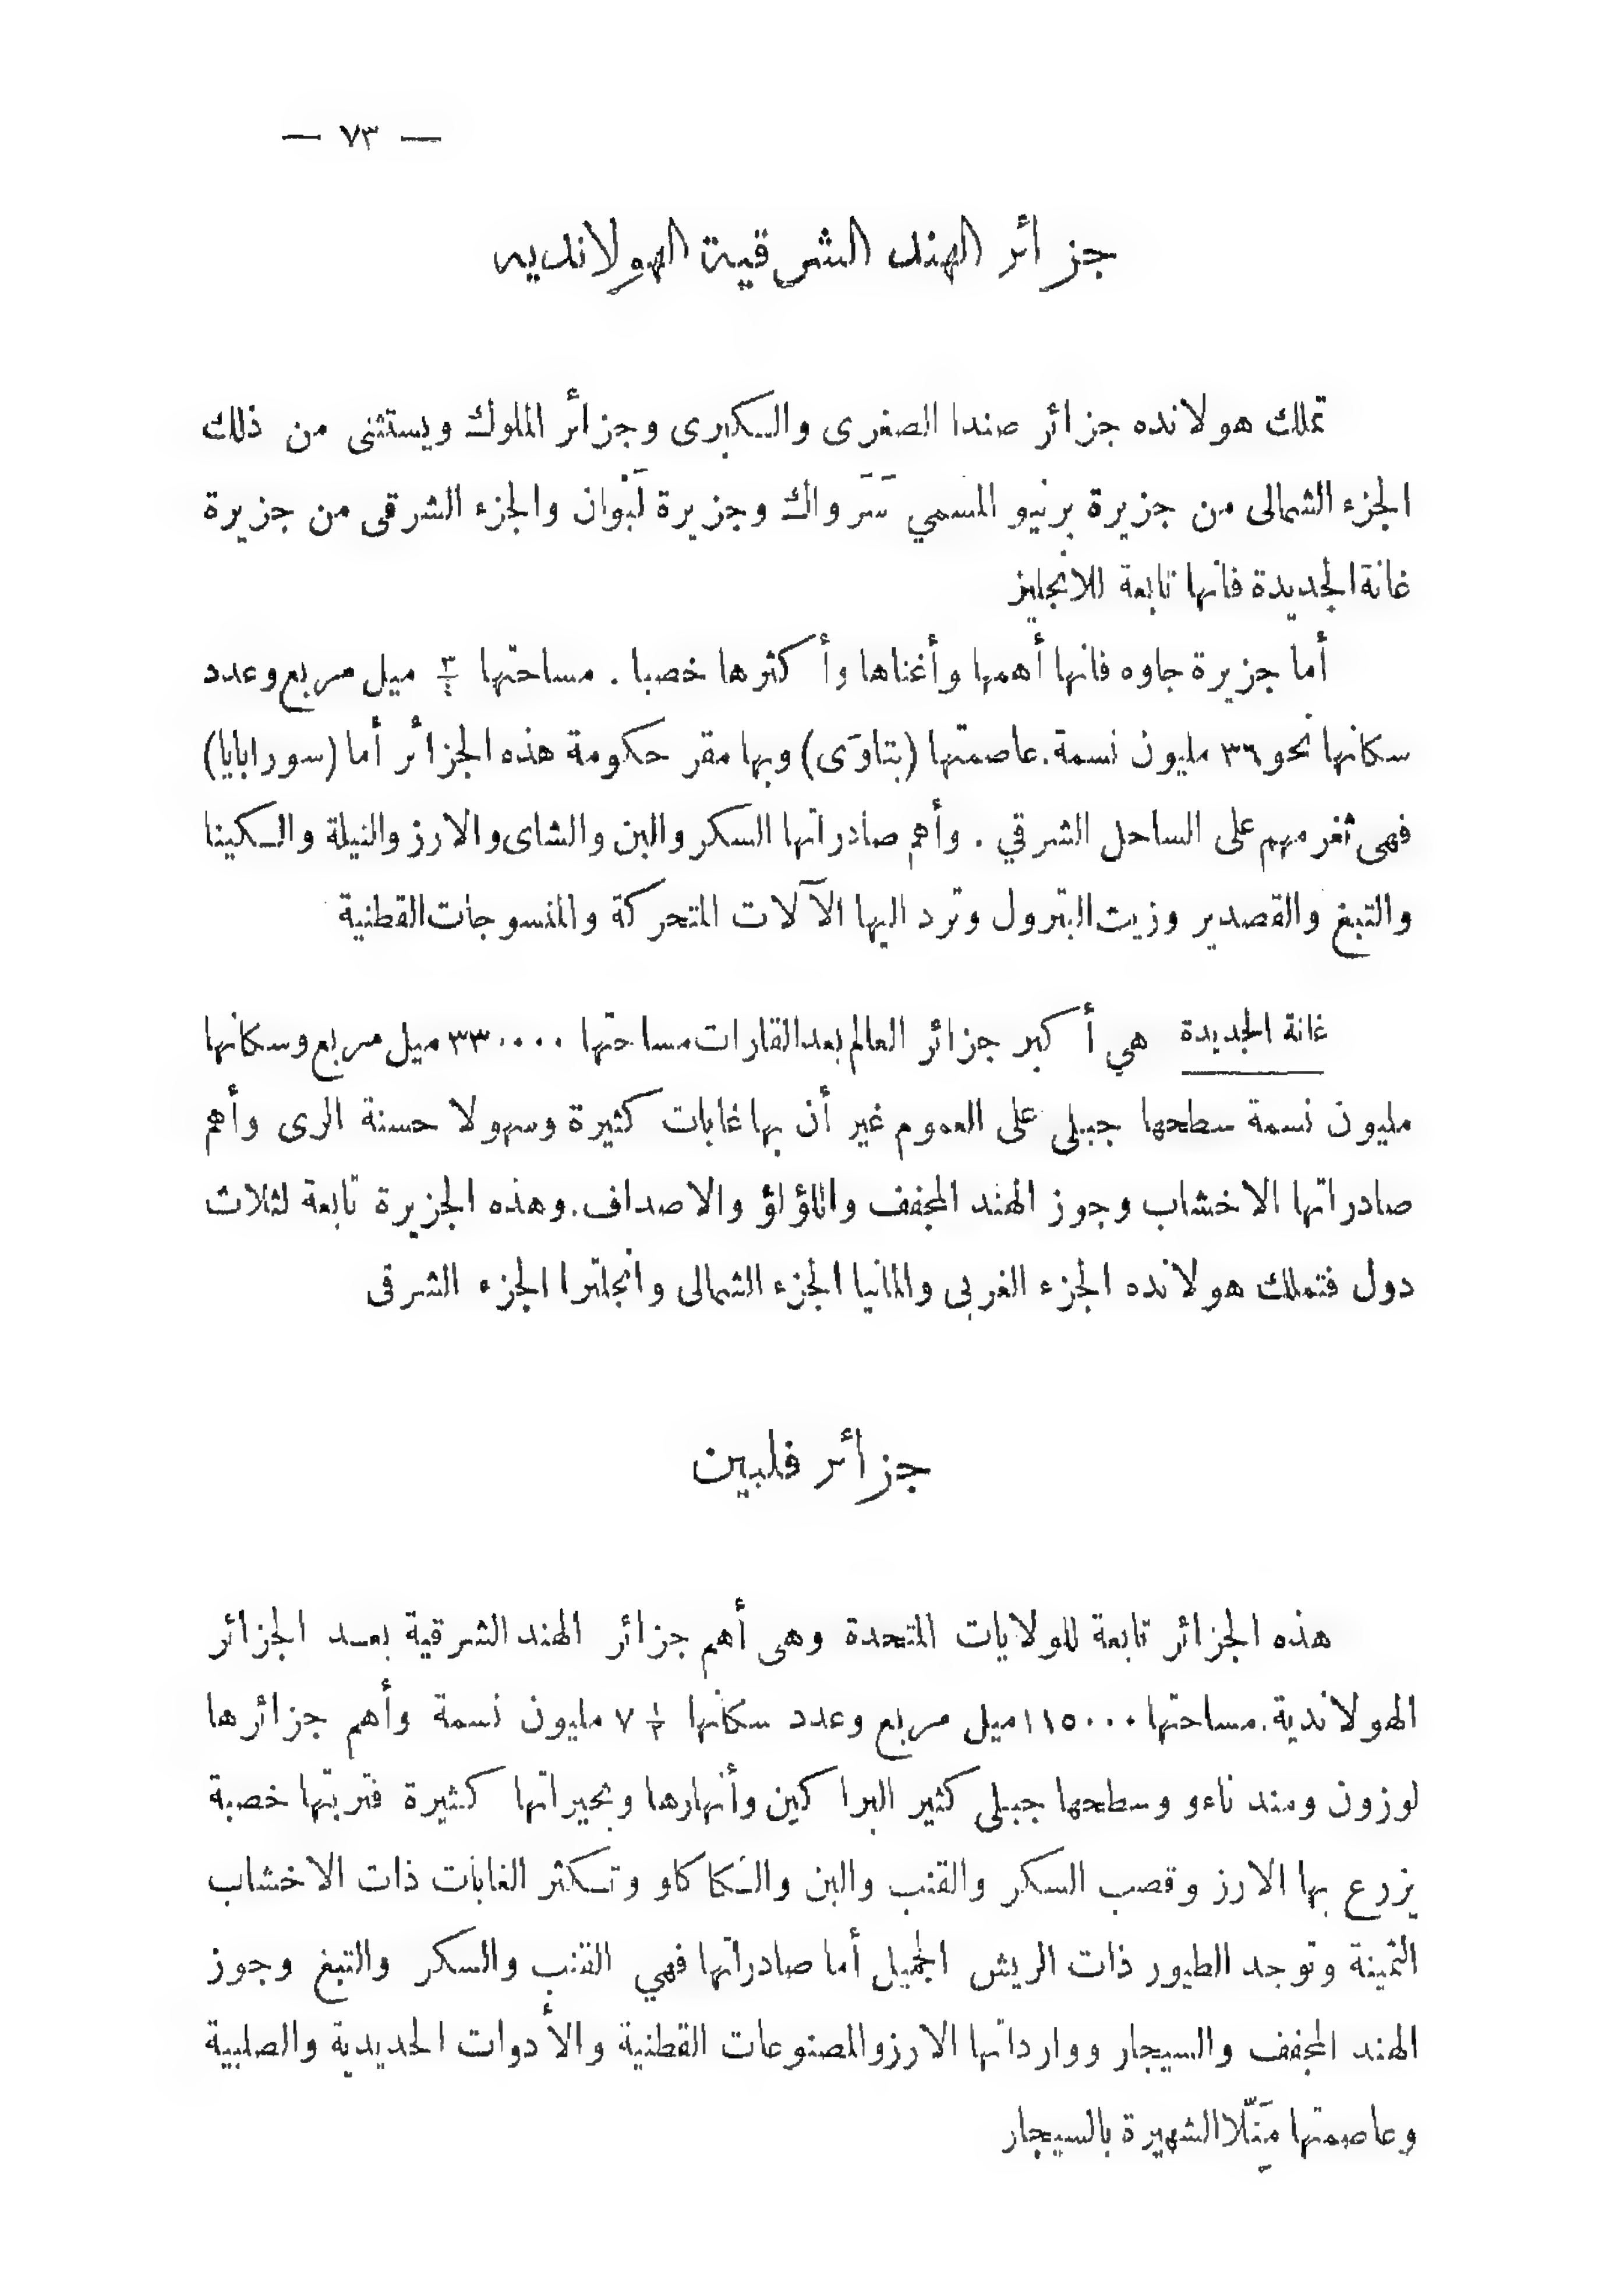 — ٧٣ —
جزائر الهند الشرقية الهولانديه
تملك هولانده جزائر صندا الصغرى والكبرى وجزائر الملوك ويستثنى من ذلك
الجزء الشمالى من جزيرة برنيو المسمي سَرَواك وجزيرة لَبْوان والجزء الشرقى من جزيرة
غانة الجديدة فانها تابعة للانجليز
أما جزيرة جاوه فانها أهمها وأغناها وأكثرها خصبا . مساحتها ٣/٤ ميل مربع وعدد
سكانها نحو ٣٦ مليون نسمة . عاصمتها (بتاوَى) وبها مقر حكومة هذه الجزائر أما (سورابايا)
فهى ثغر مهم على الساحل الشرقي . وأهم صادراتها السكر والبن والشاى والارز والنيلة والكينا
والتبغ والقصدير وزيت البترول وترد اليها الآلات المتحركة والمنسوجات القطنية
غانة الجديدة هي أكبر جزائر العالم بعد القارات مساحتها ٣٣٠٠٠٠ ميل مربع وسكانها
مليون نسمة سطحها جبلى على العموم غير أن بها غابات كثيرة وسهولا حسنة الرى وأهم
صادراتها الاخشاب وجوز الهند المجفف واللؤلؤ والاصداف . وهذه الجزيرة تابعة لثلاث
دول فتملك هولانده الجزء الغربى والمانيا الجزء الشمالى وانجلترا الجزء الشرقى
جزائر فلبين
هذه الجزائر تابعة للولايات المتحدة وهى أهم جزائر الهند الشرقية بعد الجزائر
الهولاندية . مساحتها ١١٥٠٠٠ ميل مربع وعدد سكانها ٧ ١/٢ مليون نسمة وأهم جزائرها
لوزون ومنداناءو وسطحها جبلى كثير البراكين وأنهارها وبحيراتها كثيرة فتربتها خصبة
يزرع بها الارز وقصب السكر والقنب والبن والكاكاو وتكثر الغابات ذات الاخشاب
الثمينة وتوجد الطيور ذات الريش الجميل أما صادراتها فهي القنب والسكر والتبغ وجوز
الهند المجفف والسيجار ووارداتها الارز والمصنوعات القطنية والأدوات الحديدية والصلبية
وعاصمتها مَنِلّا الشهيرة بالسيجار